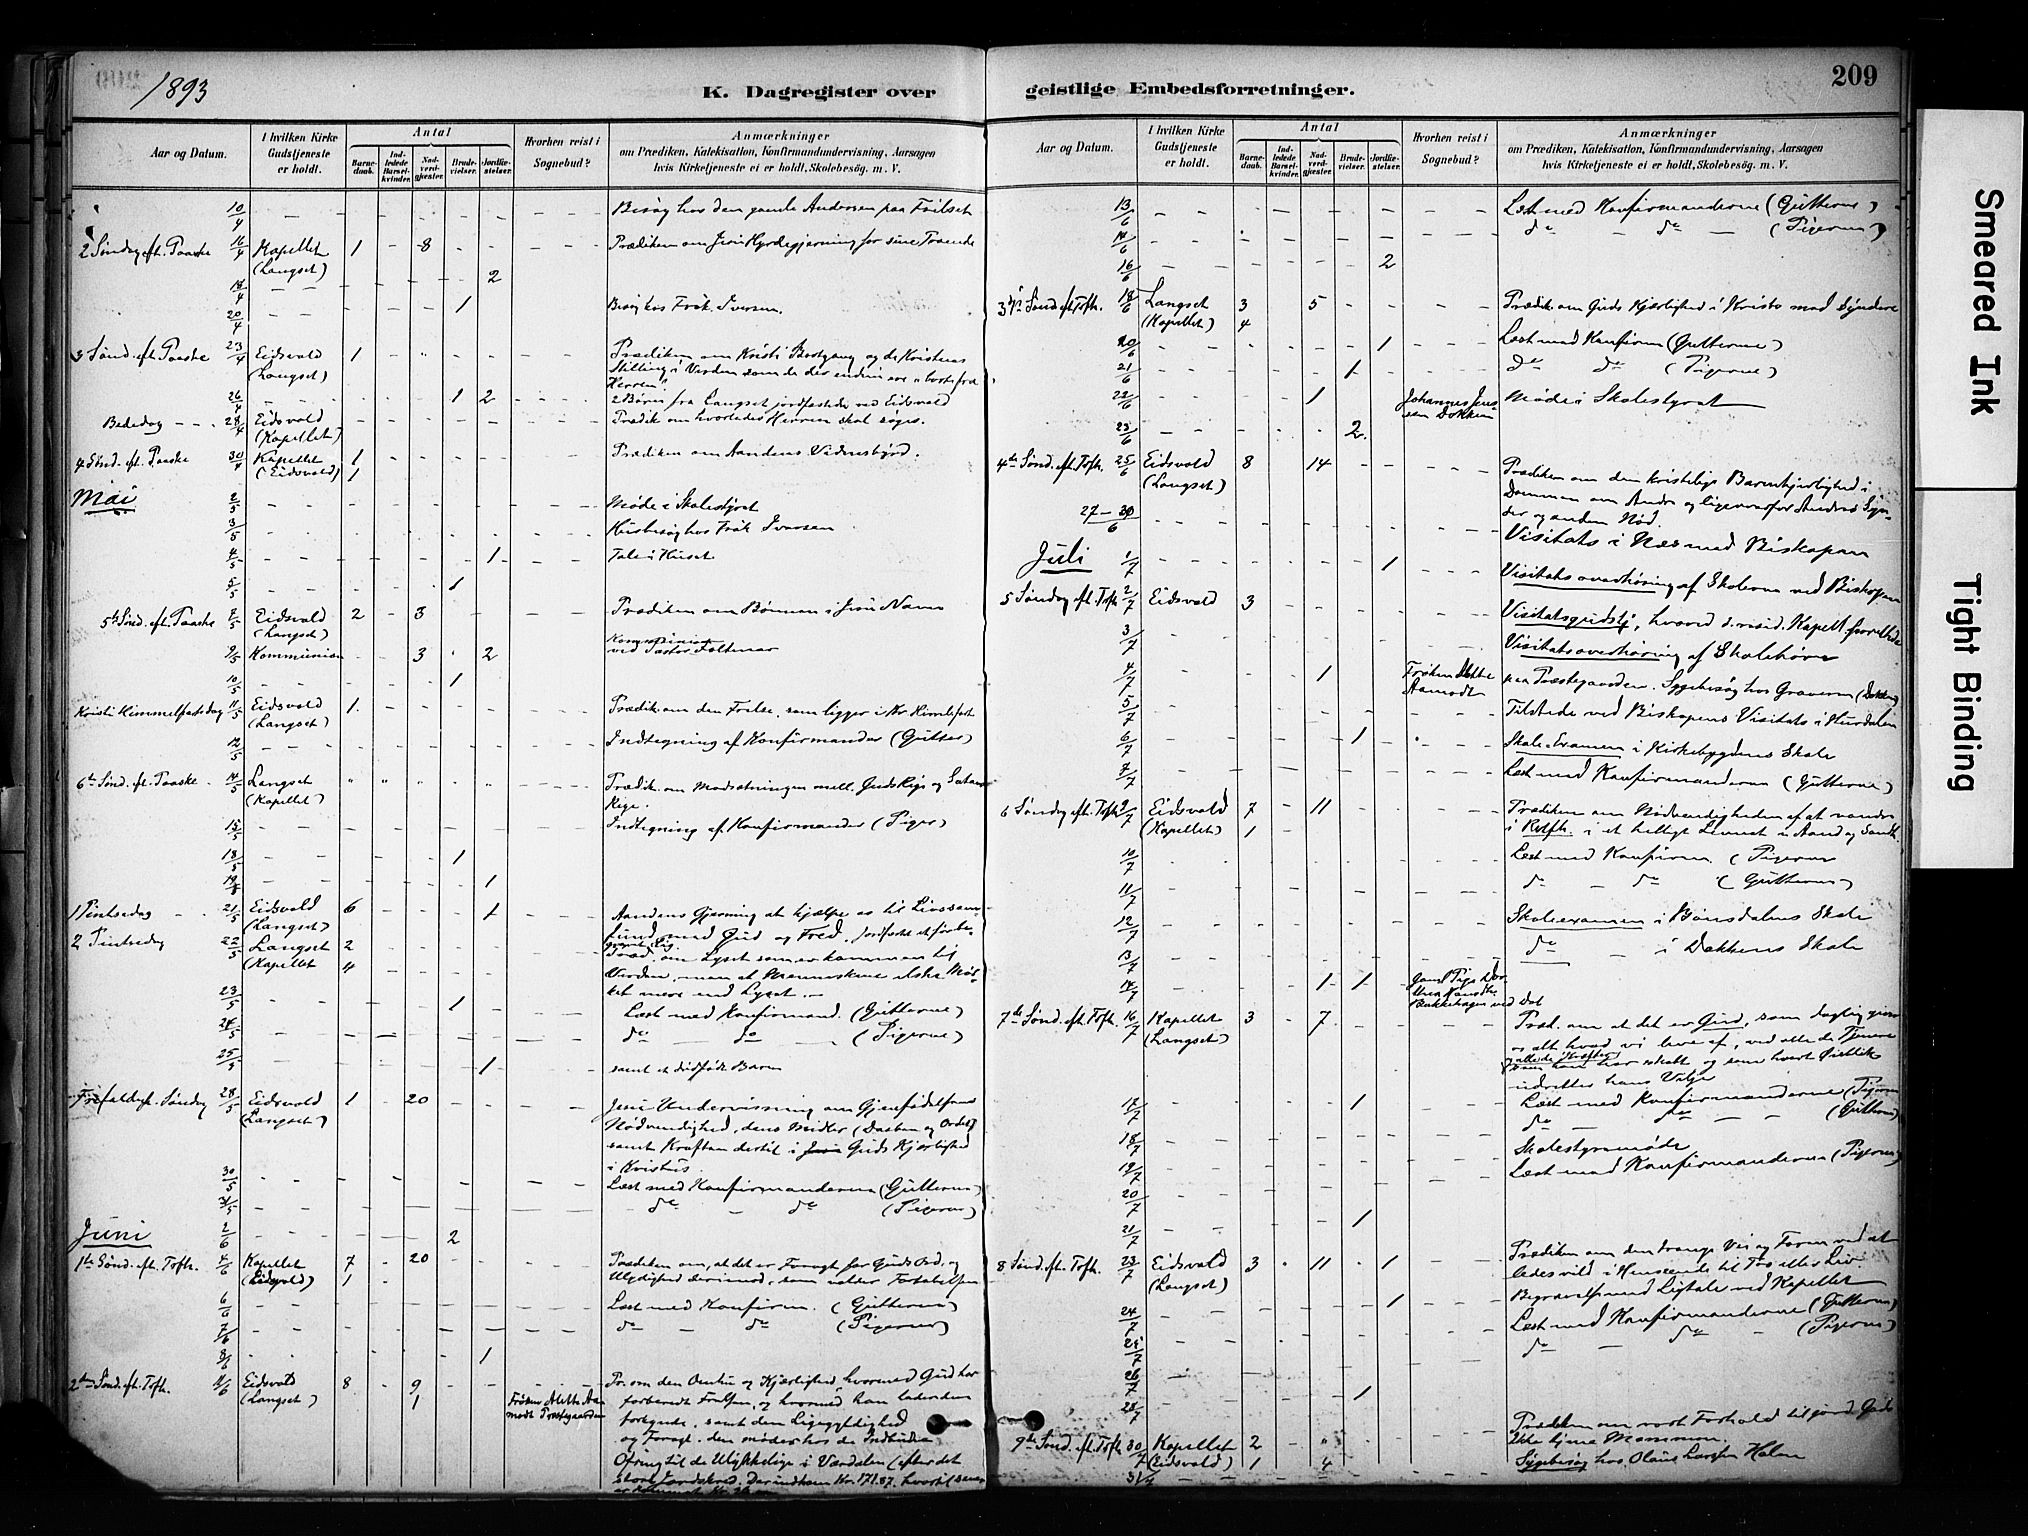 1893
K. Dagregister over
geistlige Embedsforretninger.
209
Aar og Datum.
I hvilken Kirke Gudstjeneste er holdt.
Antal
Barne-daab.
Ind-ledede Barsel-kvinder.
Nad-verd-gjæster.
Brude-vielser.
Jordfæ-stelser.
Hvorhen reist i Sognebud?
Anmærkninger
om Prædiken, Katekisation, Konfirmandundervisning, Aarsagen
hvis Kirketjeneste ei er holdt, Skolebesøg. m. V.
10/4 Besøg hos den gamle Andersen paa
2 Søndag eft. Paaske 16/4 Kapellet 1 - 8 Prædiken om Jesu Hyrdegjerning for sine Troende
(Langset)
18/4 2
20/4 1 Besøg hos Frøk. Iversen.
3 Sønd. eft. Paaske 23/4 Eidsvold 1 Prædiken om Kristi Bortgang og de Kristnes
(Langset) Stilling i Verden som de der endnu ere "borte fra
Herren"
26/4 1 2 2 Børn fra Langset jordfæstede ved Eidsvold
Bededag 28/4 Eidsvold Prædik om hvorledes Herren skal søges.
(Kapellet)
4 Sønd. eft. Paaske 30/4 Kapellet 1 Prædiken om Aandens Vidnesbyrd.
(Eidsvold) 1
Mai 2/5 Møde i Skolestyret
3/5 Husbesøg hos Frøk Iversen
4/5 1 Tale i Huset
5/5 1
5te Sønd. eft. Paaske 7/5 Eidsvold 2 3 Prædiken om Bønnen i Jesu Navn
(Langset)
9/5 Kommunion 3 2 ved Pastor
10/5 1
Kristi Himmelfartsdag 11/5 Eidsvold 1 Prædik. om den Frelse, som ligger i Kr. Himmelfart
(Langset)
12/5 Indtegning af Konfirmander (Gutter)
6te Sønd. eft. Paaske 14/5 Langset Prædik. om Modsætningen mell. Guds Rige og Satans
(Kapellet) Rige.
15/5 Indtegning af Konfirmander (Piger)
18/5 1
19/5 1
1 Pintsedag 21/5 Eidsvold 6 1 Aandens Gjerning at hjælpe os til Livssam-
(Langset) fund med Gud og Fred.
2 Pintsedag 22/5 Langset 2 Præd. om Lyset som er kommen til
(Kapellet 4 Verden, men at Menneskene elske Mør-
ket mere end Lyset.
23/5 1 Læst med Konfirmand. (Gutterne)
24/5 do do (Pigerne)
25/5 1 samt et dødfødt Barn
Trefoldigh. Søndag 28/5 Eidsvold 1 20 Jesu Undervisning om Gjenfødelsens
(Langset) Nødvendighed, dens Midler (Daaben og Ordet)
samt Kraften dertil i Guds Kjærlighed
i Kristus.
30/5 Læst med Konfirmanderne (Gutterne)
31/5 do do (Pigerne)
Juni 2/6 2
1te Sønd. eft. Tofk. 4/6 Kapellet 7 20 Prædiken om, at det er Foragt for Guds Ord, og
(Eidsvold) 1 Ulydighed derimod, som volder Fortabelsen
6/6 Læst med Konfirm. (Gutterne)
7/6 do do (Pigerne)
8/6 1
2den Sønd. eft. Tofk. 11/6 Eidsvold 8 9 Pr. om den Omhu og Kjærlighed, hvormed Gud har
(Langset) 1 Frøken Mette Aa- forberedt Frelsen, og hvormed han lader den
modt Præstegaarden forkynde, samt den Ligegyldighed
og Foragt, den møder hos de Indbudne
Ofring til de Ulykkelige i Værdalen (efter det
store Jordskred. Der indkom Kr. 171.87, hvortil senere
13/6 Læst med Konfirmanderne (Gutterne)
14/6 do do (Pigerne)
16/6 2
3die Sønd. eft Tofk. 18/6 Langset 3 5 Prædik. om Guds Kjærlighed i Kristo mod Syndere
(Kapellet) 4
20/6 1 Læst med Konfirm (Gutterne)
21/6 1 do do (Pigerne)
22/6 1 Johannes Jens- Møde i Skolestyret
sen Dokken
23/6 2
4de Sønd. eft. Tofk. 25/6 Eidsvold 8 14 Prædiken om den kristelige Barmhjertighed i
(Langset) Dommen om Andre og ligeoverfor Andres Syn-
der og anden Nød.
27-30/6 Visitats i Næs med Biskopen
Juli 1/7 1 Visitatsoverhøring af Skolerne ved Biskopen
5 Søndag eft. Tofk 2/7 Eidsvold 3 Visitatsgudstj, hvorved d. resid. Kapell. forrettede
3/7 Visitatsoverhøring af Skolebørn
4/7 1 Frøken Mette paa Præstegaarden. Sygebesøg hos Graveren (Dokken)
Aamodt
5/7 Tilstede ved Biskopens Visitats i Hurdalen
6/7 1 Skole-Examen i Kirkebygdens Skole
7/7 Læst med Konfirmanderne (Gutterne)
6 Søndag eft. Tofk 9/7 Eidsvold 7 11 Prædiken om Nødvendigheden af at vandre
(Kapellet) 1 i Retfh. i et helligt Levnet i Aand og Sandh.
10/7 Læst med Konfirm. (Pigerne
11/7 do do (Gutterne)
12/7 Skoleexamen i Bønsdalens Skole
13/7 do i Dokkens Skole
14/7 1 1
7de Sønd. eft. Tofk. 16/7 Kapellet 3 7 Præd. om at det er Gud, som daglig giver
(Langset) os alt hvad vi leve af, ved alle de Tjenere
som han har skabt og som hvert Øieblik
udretter hans Vilje
17/7 1 Læst med Konfirmanderne (Pigerne)
18/7 do do (Gutterne)
19/7 Skolestyremøde
20/7 Læst med Konfirmanderne (Pigerne)
21/7 1
8 Sønd. eft. Tofk. 23/7 Eidsvold 3 11 1 Prædiken om den trange Vei og Faren ved at
(Langset) ledes vild i Henseende til Tro eller Liv
24/7 1 Begravelse med Ligtale ved Kapellet
25/7 Læst med Konfirmanderne (Gutterne)
26/7 do (Pigerne)
28/7 1
9de Sønd. eft. Tofk 30/7 Kapellet 2 Prædiken om vort Forhold til jord. Gods
(Eidsvold) 1 4 Ikke tjene Mammon.
31/7 Sygebesøg hos Olaus Larsen Holm
Smeared Ink
Tight Binding